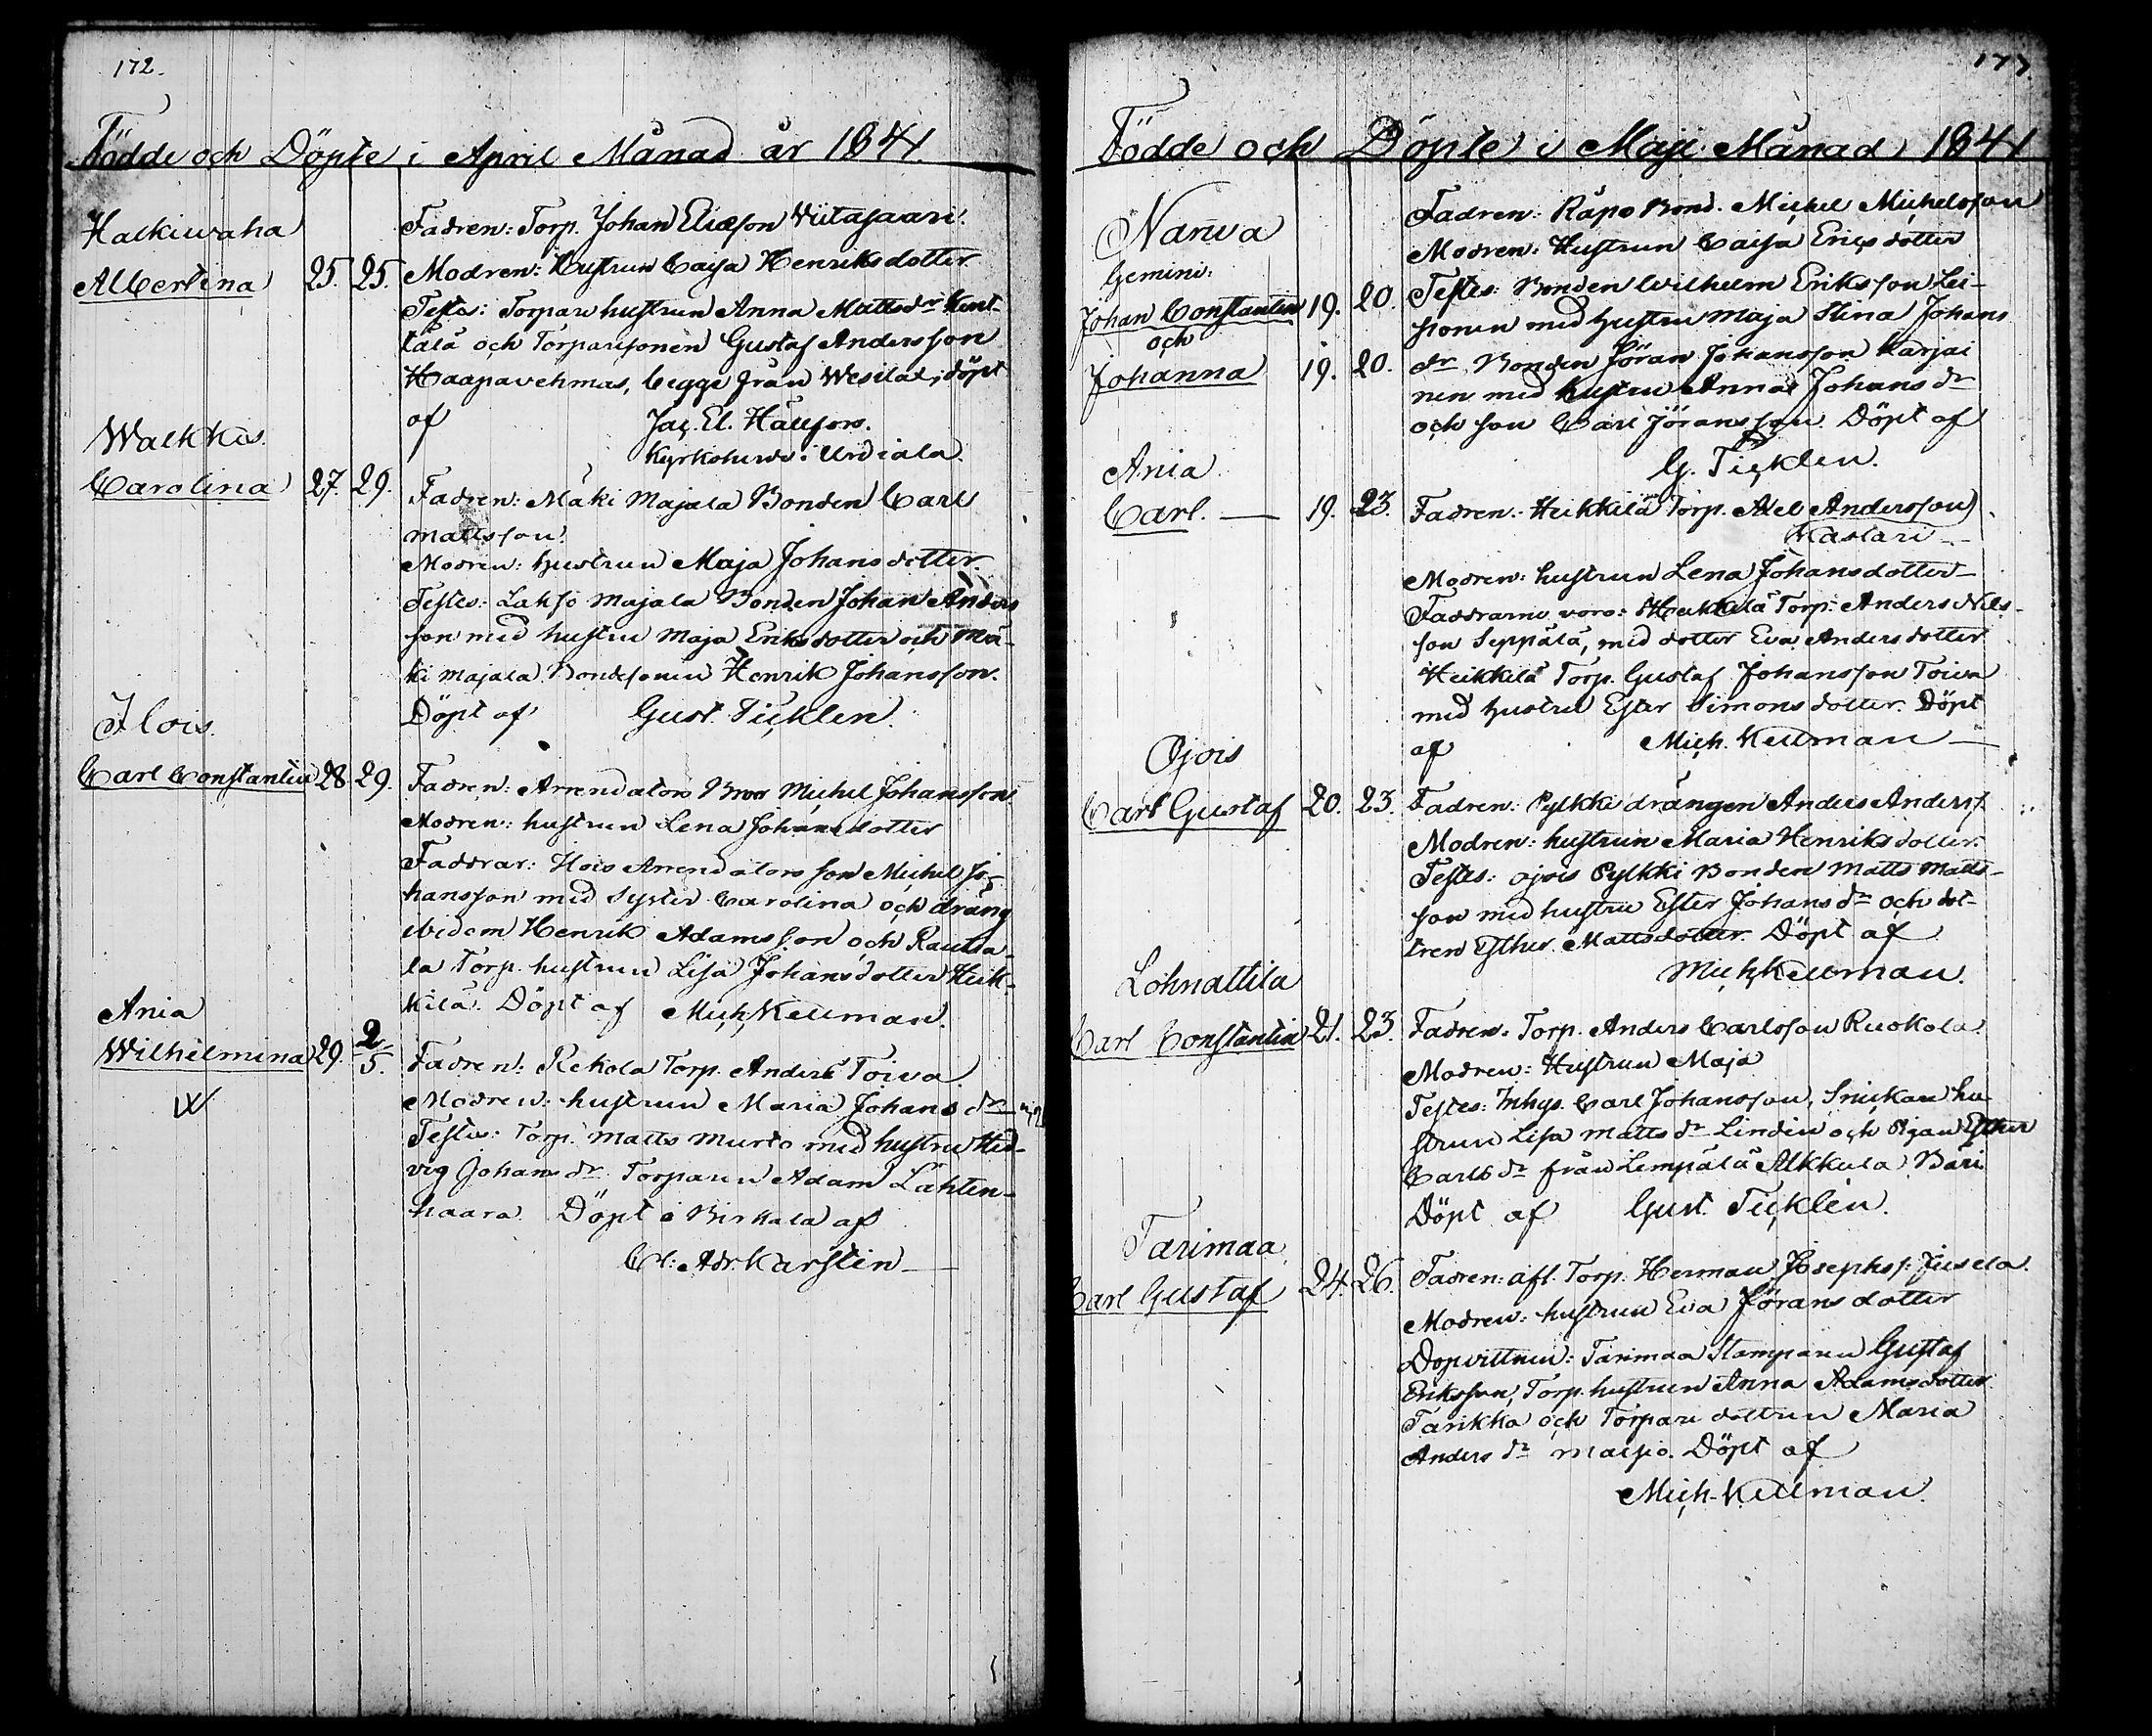 172.
Födde och Döpte i April Månad år 1841.
Halkiwaha
Albertina 25. 25.
Fadren: Torp. Johan Eliæson Viitasaari.
Modren: Hustrun Caisa Henriksdotter
Testes: Torpare hustrun Anna Mattsdr Kent-
tälä och Torparesonen Gustaf Andersson
Haapavehmas, begge från Wesilax, döpt
af Jac. El. Hällfors.
Kyrkoherde i Urdiala.
Walkkis.
Carolina 27. 29.
Fadren: Mäki Majala Bonden Carl
Mattsson.
Modren: hustrun Maja Johansdotter.
Testes: Lahso Majala Bonden Johan Anders
son med hustru Maja Eriksdotter och Mä-
ki Majala Bondesonen Henrik Johansson.
Döpt af Gust. Ticklén.
Ilois.
Carl Constantin 28 29.
Fadren: Arrendators Bror Michel Johansson
Modren: hustrun Lena Johansdotter
Faddrar: Ilois Arrendators son Michel Jo-
hansson med Syster Carolina och dräng
ibidem Henrik Adamsson och Rautia-
la Torp. hustrun Lisa Johansdotter Heik-
kilä. Döpt af Mich. Kellman.
Ania
Wilhelmina 29. 2/5.
Fadren: Rekola Torp. Anders Toiva
Modren: hustrun Maria Johans dr
Testes: Torp. Matts Murto med hustru Hed-
vig Johans dr Torparen Adam Lähten-
haara. Döpt i Birkala af
Cl: Adr. Karstén
Födde och Döpte i Maji Månad 1841
Nariva
Gemini:
Johan Constantin 19. 20.
och
Johanna 19. 20.
Fadren: Räpo Bond. Michel Michelsson
Modren: Hustrun Caisa Ericsdotter
Testes: Bonden Wilhelm Eriksson Lei-
ponen med hustru Maja Stina Johans
dr, Bonden Jöran Johansson Karjai
nen med hustru Anna Johans dr
och son Carl Jöransson. Döpt af
G. Ticklén.
Ania
Carl. 19. 23.
Fadren: Heikkilä Torp. Axel Andersson
Kastari
Modren: hustrun Lena Johansdotter
Faddrarne voro: Heikkilä Torp. Anders Nils-
son Seppälä, med dotter Eva Andersdotter
Heikkilä Torp. Gustaf Johansson Toiva
med hustru Ester Simonsdotter. Döpt
af Mich. Kellman
Ojois
Carl Gustaf 20. 23.
Fadren: Pylkki drängen Anders Anderss.
Modren: hustrun Maria Henriksdotter.
Testes: Ojois Pylkki Bonden Matts Matts-
son med hustru Ester Johans dr och dot-
tren Esther Mattsdotter. Döpt af
Mich Kellman.
Lohnattila
Carl Constantin 21. 23.
Fadren: Torp. Anders Carlsson Ruokola
Modren: Hustrun Maja
Testes: Inhys. Carl Johansson, Snickare hu-
strun Lisa Matts dr Lindén och Pigan Esther
Carls dr från Lempälä Alkkula Bäri
Döpt af Gust. Ticklén.
Tarimaa
Carl Gustaf 24. 26.
Fadren: afl. Torp. Herman Josephss. Jusela
Modren: hustrun Eva Jöransdotter
Dopvittnen: Tarimaa Stamparen Gustaf
Eriksson, Torp. hustrun Anna Adamsdotter
Tarikka och Torpare dottren Maria
Anders dr Maisio. Döpt af
Mich. Kellman.